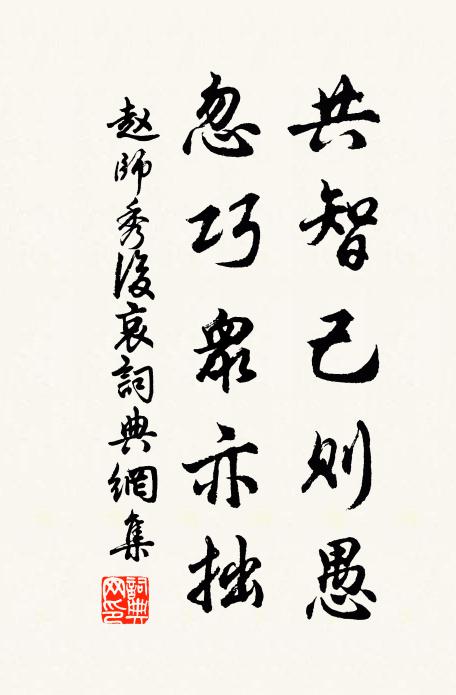 共智己則愚
忽巧衆亦拙
赵師秀後哀詞典網集
詞典
网印